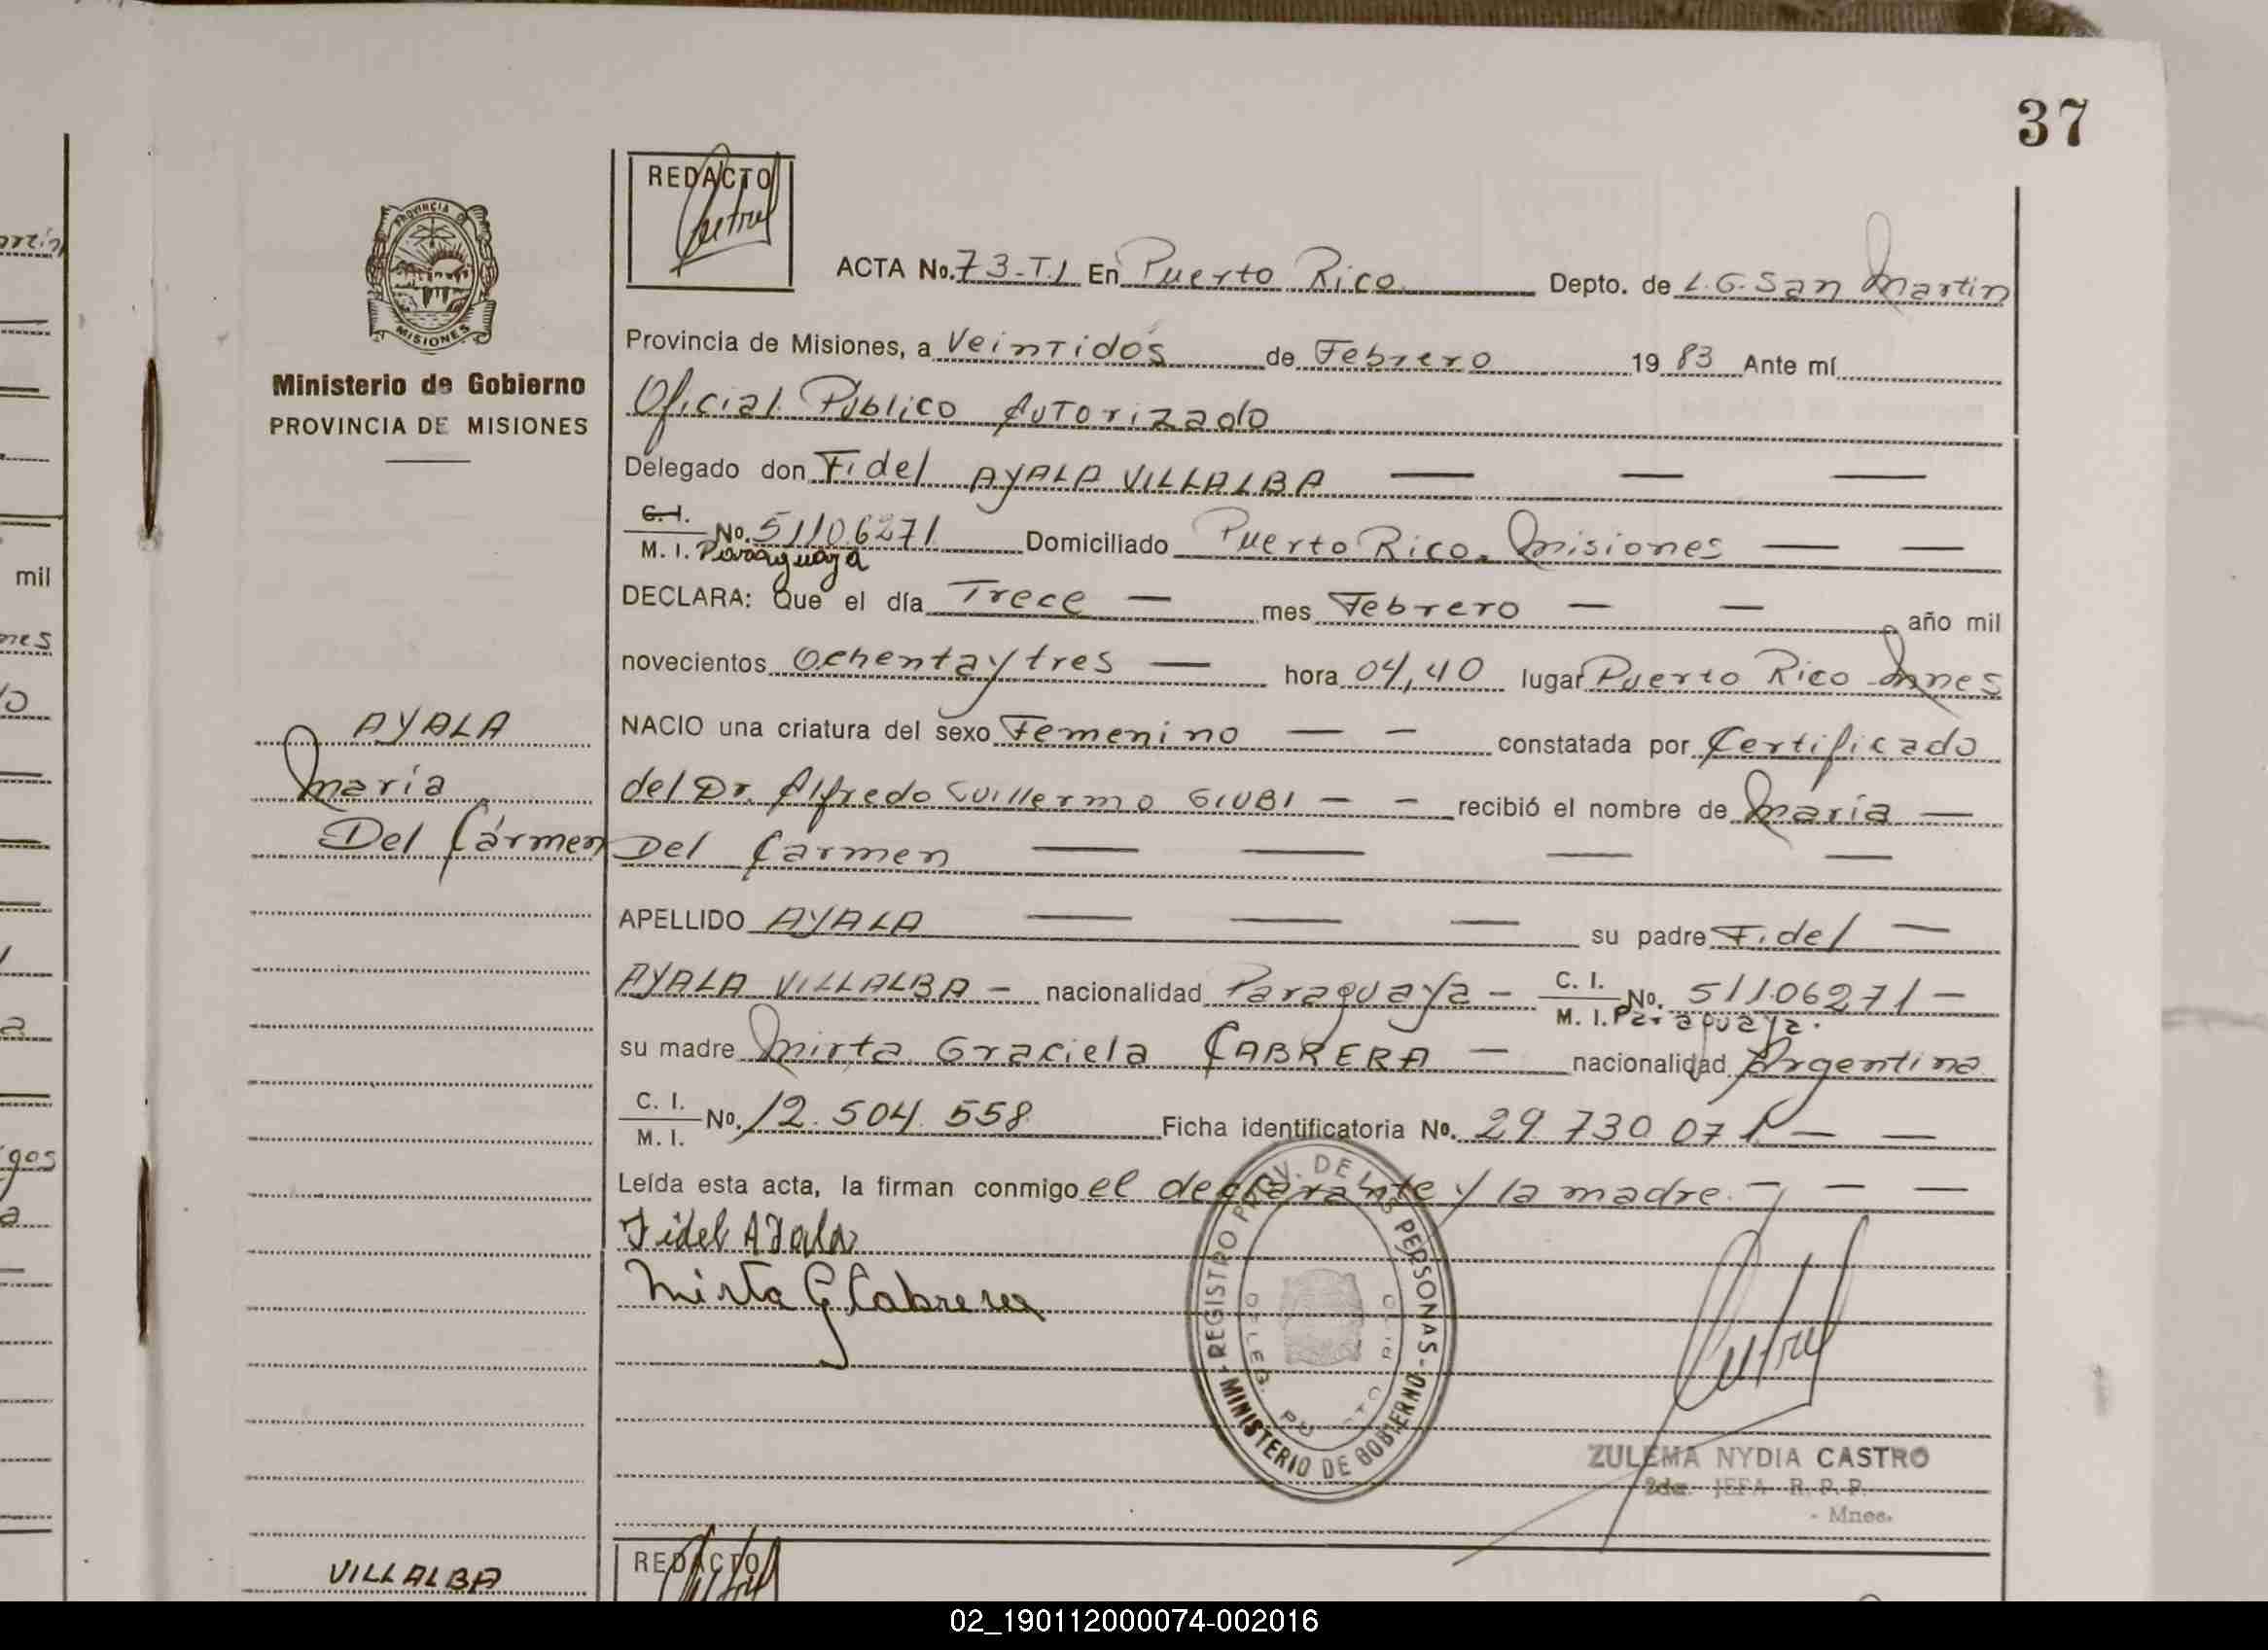 37
REDACTO
PROVINCIA DE
MISIONES
ACTA No. 73-T.I En Puerto Rico Depto. de L.G. San Martin
Provincia de Misiones, a Veintidós de Febrero 19 83 Ante mí
Ministerio de Gobierno
PROVINCIA DE MISIONES
Oficial Público Autorizado
Delegado don Fidel AYALA VILLALBA — — —
C. I.
M. I. No. 51106271 Domiciliado Puerto Rico. Misiones — —
Paraguaya
DECLARA: Que el día Trece — mes Febrero — — año mil
novecientos Ochenta y tres — hora 04,40 lugar Puerto Rico Mnes
AYALA
María
Del Cármen
NACIO una criatura del sexo Femenino — — constatada por Certificado
del Dr. Alfredo Guillermo GIUBI — — recibió el nombre de María —
Del Carmen — — — —
APELLIDO AYALA — — — su padre Fidel —
AYALA VILLALBA — nacionalidad Paraguaya — C. I. No. 51106271 —
M. I. Paraguaya.
su madre Mirta Graciela CABRERA — nacionalidad Argentina
C. I.
M. I. No. 12.504.558 Ficha identificatoria No. 29.730.071 — —
Leída esta acta, la firman conmigo el declarante y la madre. — — —
Fidel Ayala
Mirta G Cabrera
REGISTRO PROV. DE LAS PERSONAS - MINISTERIO DE GOBIERNO -
ZULEMA NYDIA CASTRO
2da. JEFA R. P. P.
- Mnes.
VILLALBA
REDACTO
mil
02_190112000074-002016